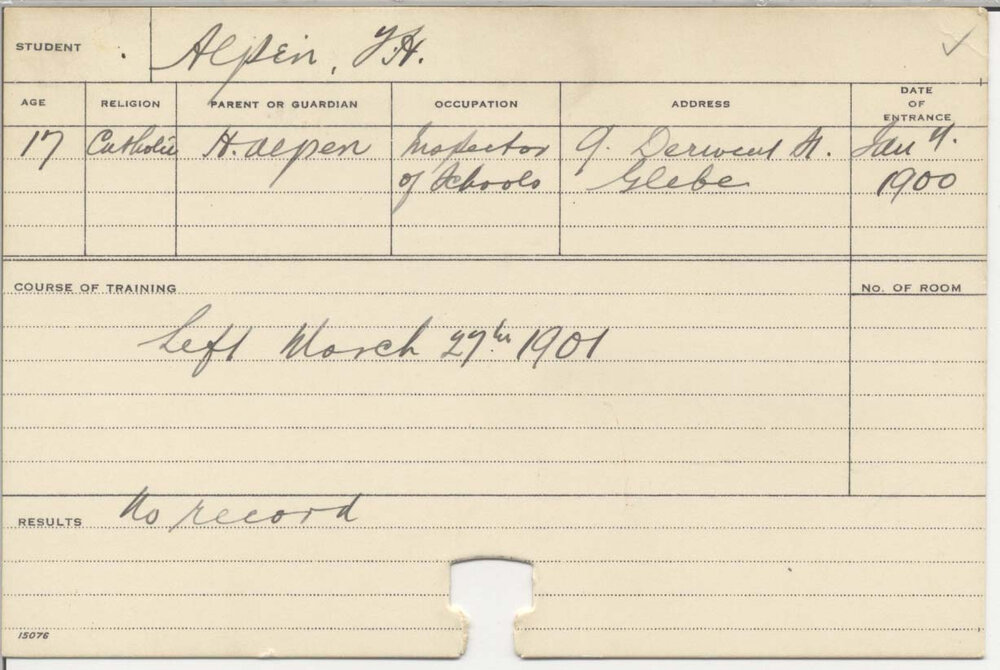 STUDENT Alpen, J.H.
AGE RELIGION PARENT OR GUARDIAN OCCUPATION ADDRESS DATE OF ENTRANCE
17 Catholic H. Alpen Inspector 9. Derwent St. Jan
of Schools Glebe 1900
COURSE OF TRAINING No. OF ROOM
Left March 27th 1901
RESULTS No record
15076